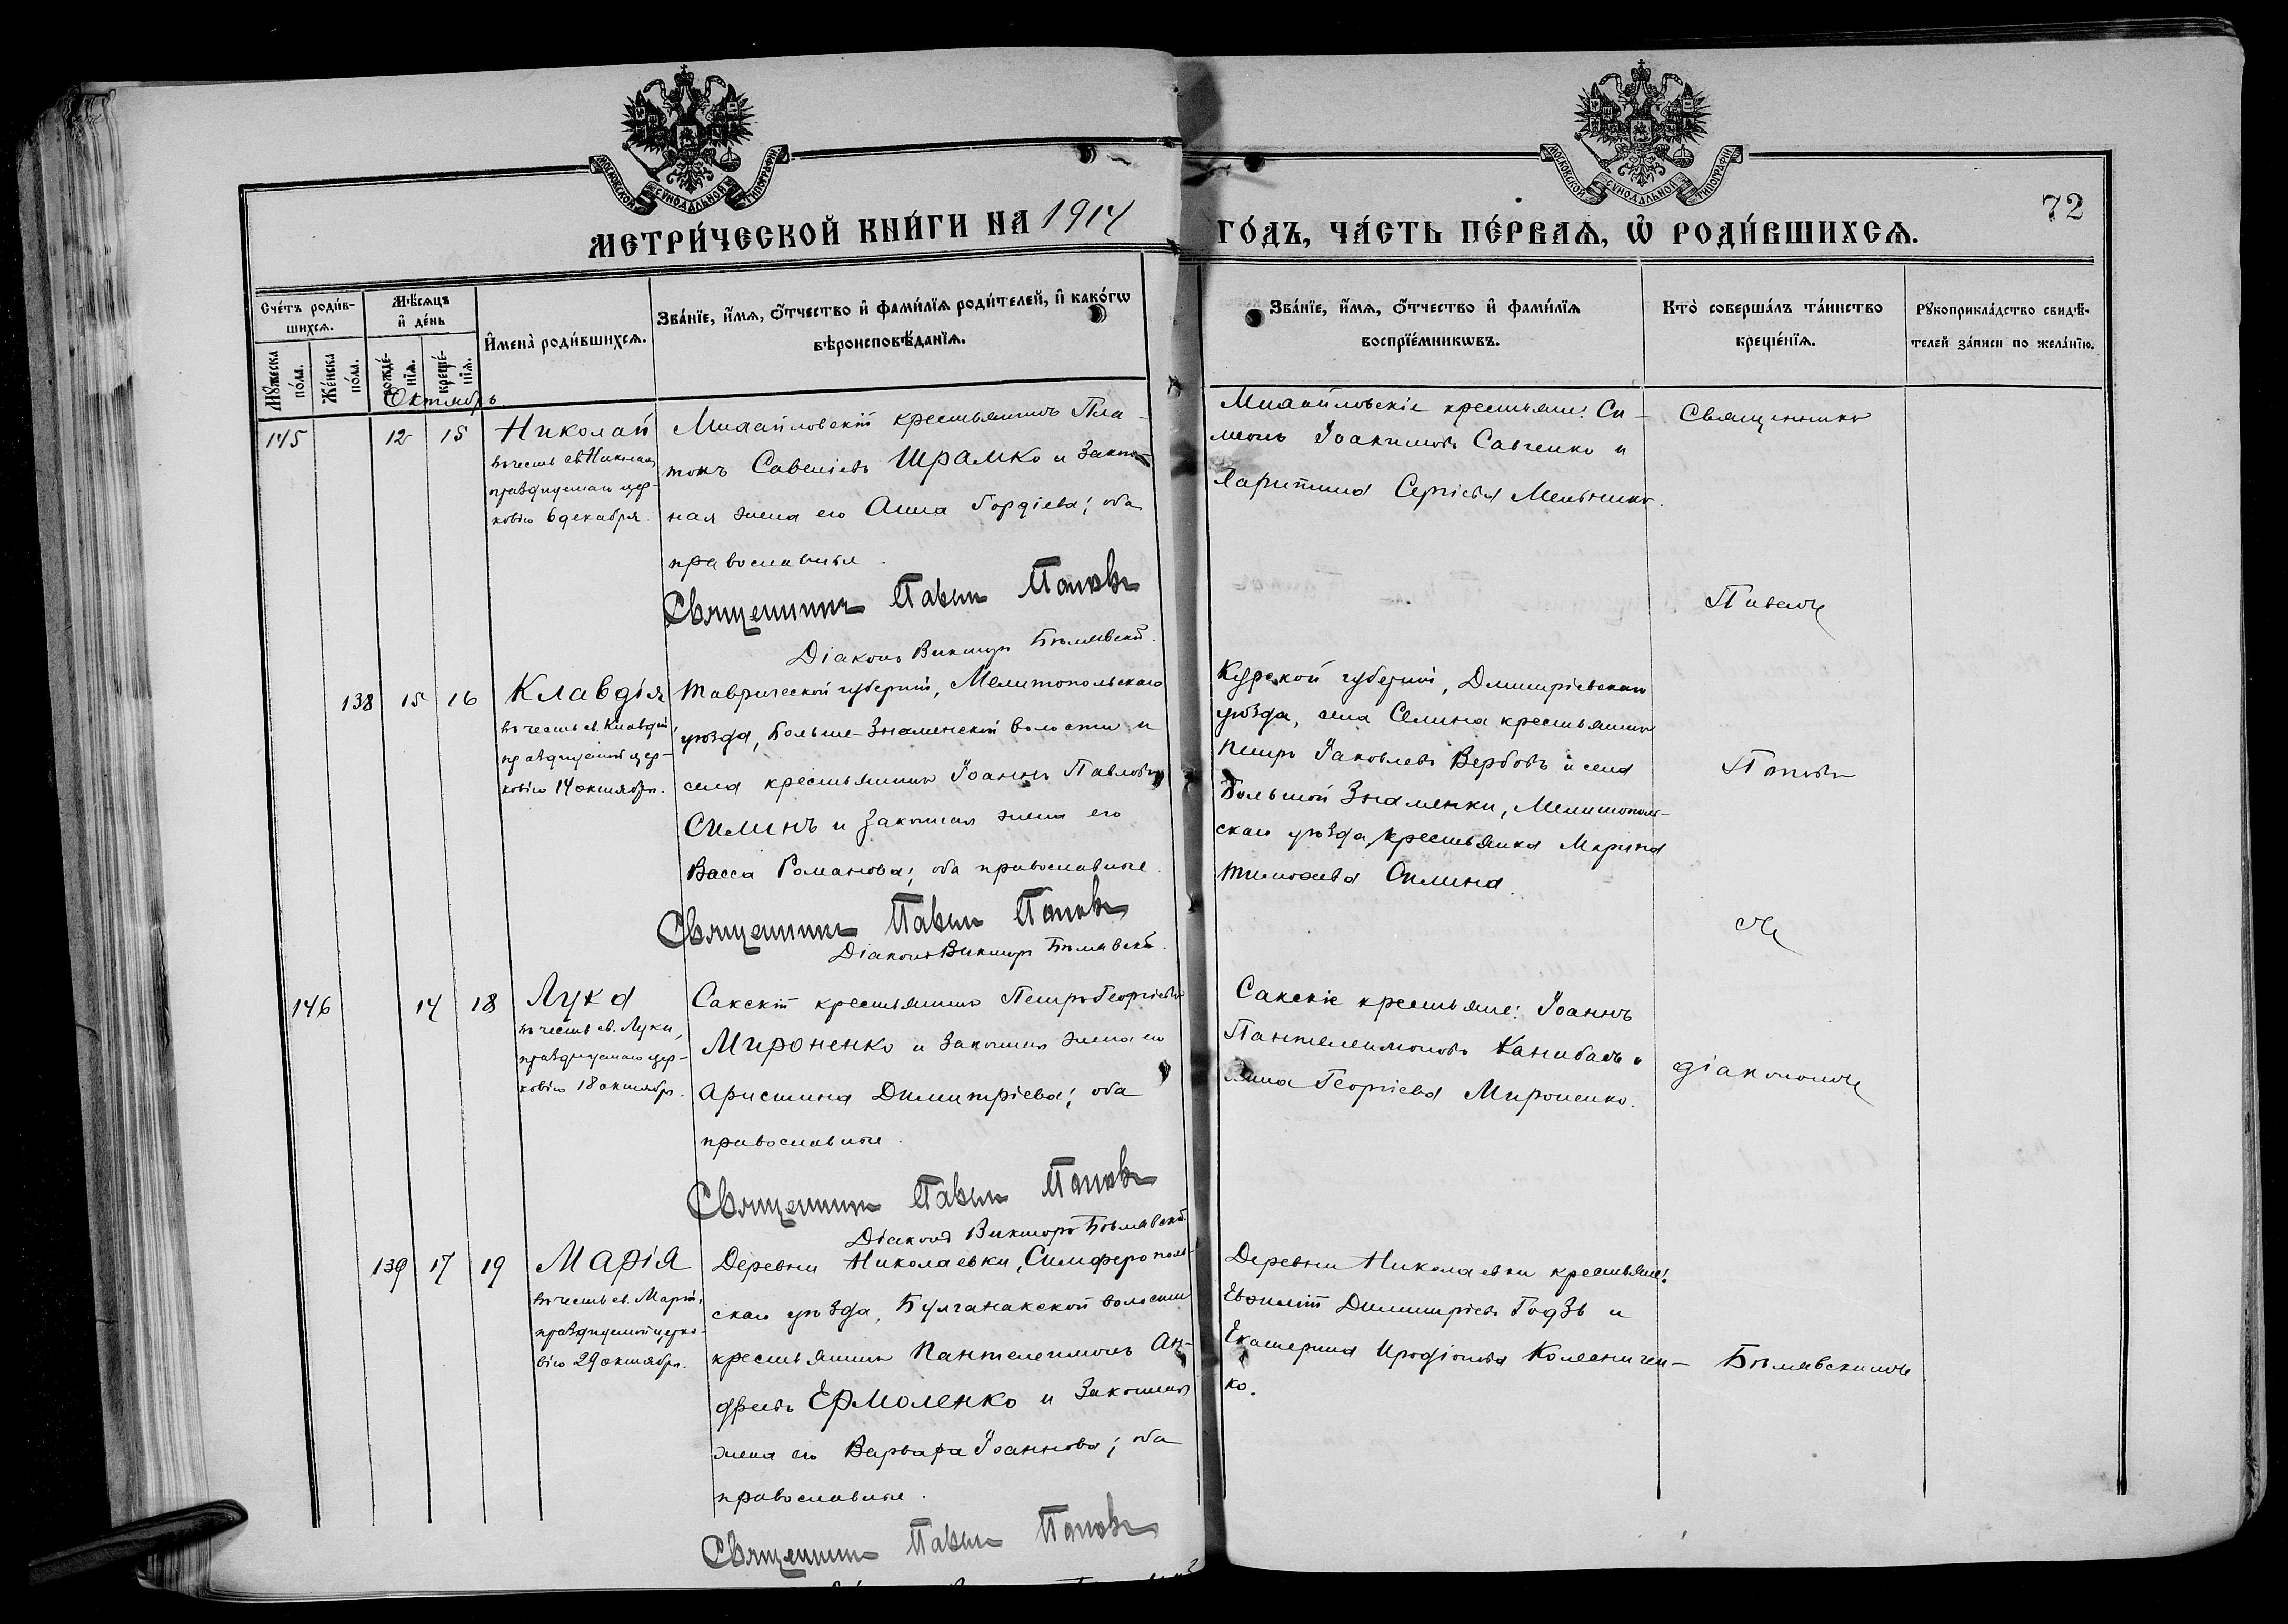 МОСКОВСКОЙ СѴНОДАЛЬНОЙ ТИПОГРАФІИ
МОСКОВСКОЙ СѴНОДАЛЬНОЙ ТИПОГРАФІИ
72
МЕТРИ́ЧЕСКОЙ КНИ́ГИ НА 1914 ГО́ДЪ, ЧА́СТЬ ПЕ́РВАѦ, Ѡ҆ РОДИ́ВШИХСѦ.
Сче́тъ роди́в-
шихсѧ.
Мꙋ́жеска по́ла.
Же́нска по́ла.
Мѣ́сѧцъ
и҆ де́нь
рожде́-нїѧ.
креще́-нїѧ.
И҆мена̀ роди́вшихсѧ.
Зва́нїе, и҆́мѧ, ѻ҆́тчество и҆ фами́лїѧ роди́телей, и҆ како́гѡ
вѣроисповѣ́данїѧ.
Зва́нїе, и҆́мѧ, ѻ҆́тчество и҆ фами́лїѧ
воспрїе́мникѡвъ.
Кто̀ соверша́лъ та́инство
креще́нїѧ.
Рꙋкоприкла́дство свидѣ́-
телей за́писи по жела́нїю.
Октябрь
145 12 15 Николай
въ честь св. Николая,
празднуемаго цер-
ковію 6 декабря.
Михайловскій крестьянинъ Пла-
тонъ Савеліевъ Шрамко и закон-
ная жена его Анна Гордіева; оба
православные.
Священникъ Павелъ Поповъ
Діаконъ Викторъ Бѣлявскій.
Михайловскіе крестьяне: Си-
меонъ Іоакимовъ Савченко и
Харитина Сергіева Мельнико.
Священникъ
Павелъ
138 15 16 Клавдія
въ честь св. Клавдіи,
празднуемой цер-
ковію 14 октября.
Таврической губерніи, Мелитопольскаго
уѣзда, Больше-Знаменской волости и
села крестьянинъ Іоаннъ Павловъ
Силинъ и законная жена его
Васса Романова; оба православные.
Священникъ Павелъ Поповъ
Діаконъ Викторъ Бѣлявскій.
Курской губерніи, Димитріевскаго
уѣзда, села Селина крестьянинъ
Петръ Іаковлевъ Вербовъ и села
Большой Знаменки, Мелитополь-
скаго уѣзда, крестьянка Марина
Тимоѳеева Силина.
Поповъ
съ
146 14 18 Лука
въ честь св. Луки,
празднуемаго цер-
ковію 18 октября.
Сакскій крестьянинъ Петръ Георгіевъ
Мироненко и законная жена его
Аристина Димитріева; оба
православные.
Священникъ Павелъ Поповъ
Діаконъ Викторъ Бѣлявскій.
Сакскіе крестьяне: Іоаннъ
Пантелеимоновъ Канибалъ и
Анна Георгіева Мироненко.
діакономъ
139 17 19 Марія
въ честь св. Маріи,
празднуемой церко-
вію 29 октября.
Деревни Николаевки, Симферополь-
скаго уѣзда, Булганакской волости
крестьянинъ Пантелеимонъ Ан-
дреевъ Ермоленко и законная
жена его Варвара Іоаннова; оба
православные.
Священникъ Павелъ Поповъ
Деревни Николаевки крестьяне:
Евѳимій Димитріевъ Годзь и
Екатерина Иродіонова Колесничен-
ко.
Бѣлявскимъ